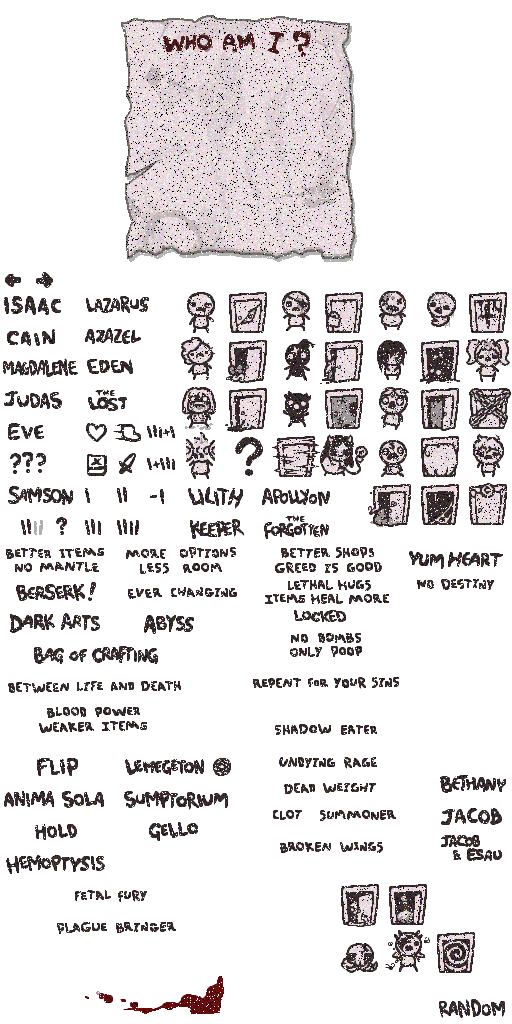 WHO AM I?
ISAAC LAZARUS
CAIN AZAZEL
MAGDALENE EDEN
JUDAS THE LOST
EVE
??? ?
SAMSON LILITH APOLLYON
? KEEPER THE FORGOTTEN
BETTER ITEMS
NO MANTLE
MORE OPTIONS
LESS ROOM
BETTER SHOPS
GREED IS GOOD
YUM HEART
BERSERK!
EVER CHANGING
LETHAL HUGS
ITEMS HEAL MORE
NO DESTINY
DARK ARTS
ABYSS
LOCKED
BAG OF CRAFTING
NO BOMBS
ONLY POOP
BETWEEN LIFE AND DEATH
REPENT FOR YOUR SINS
BLOOD POWER
WEAKER ITEMS
SHADOW EATER
FLIP
LEMEGETON
UNDYING RAGE
ANIMA SOLA
SUMPTORIUM
DEAD WEIGHT
BETHANY
HOLD
GELLO
CLOT SUMMONER
JACOB
HEMOPTYSIS
BROKEN WINGS
JACOB
& ESAU
FETAL FURY
PLAGUE BRINGER
RANDOM